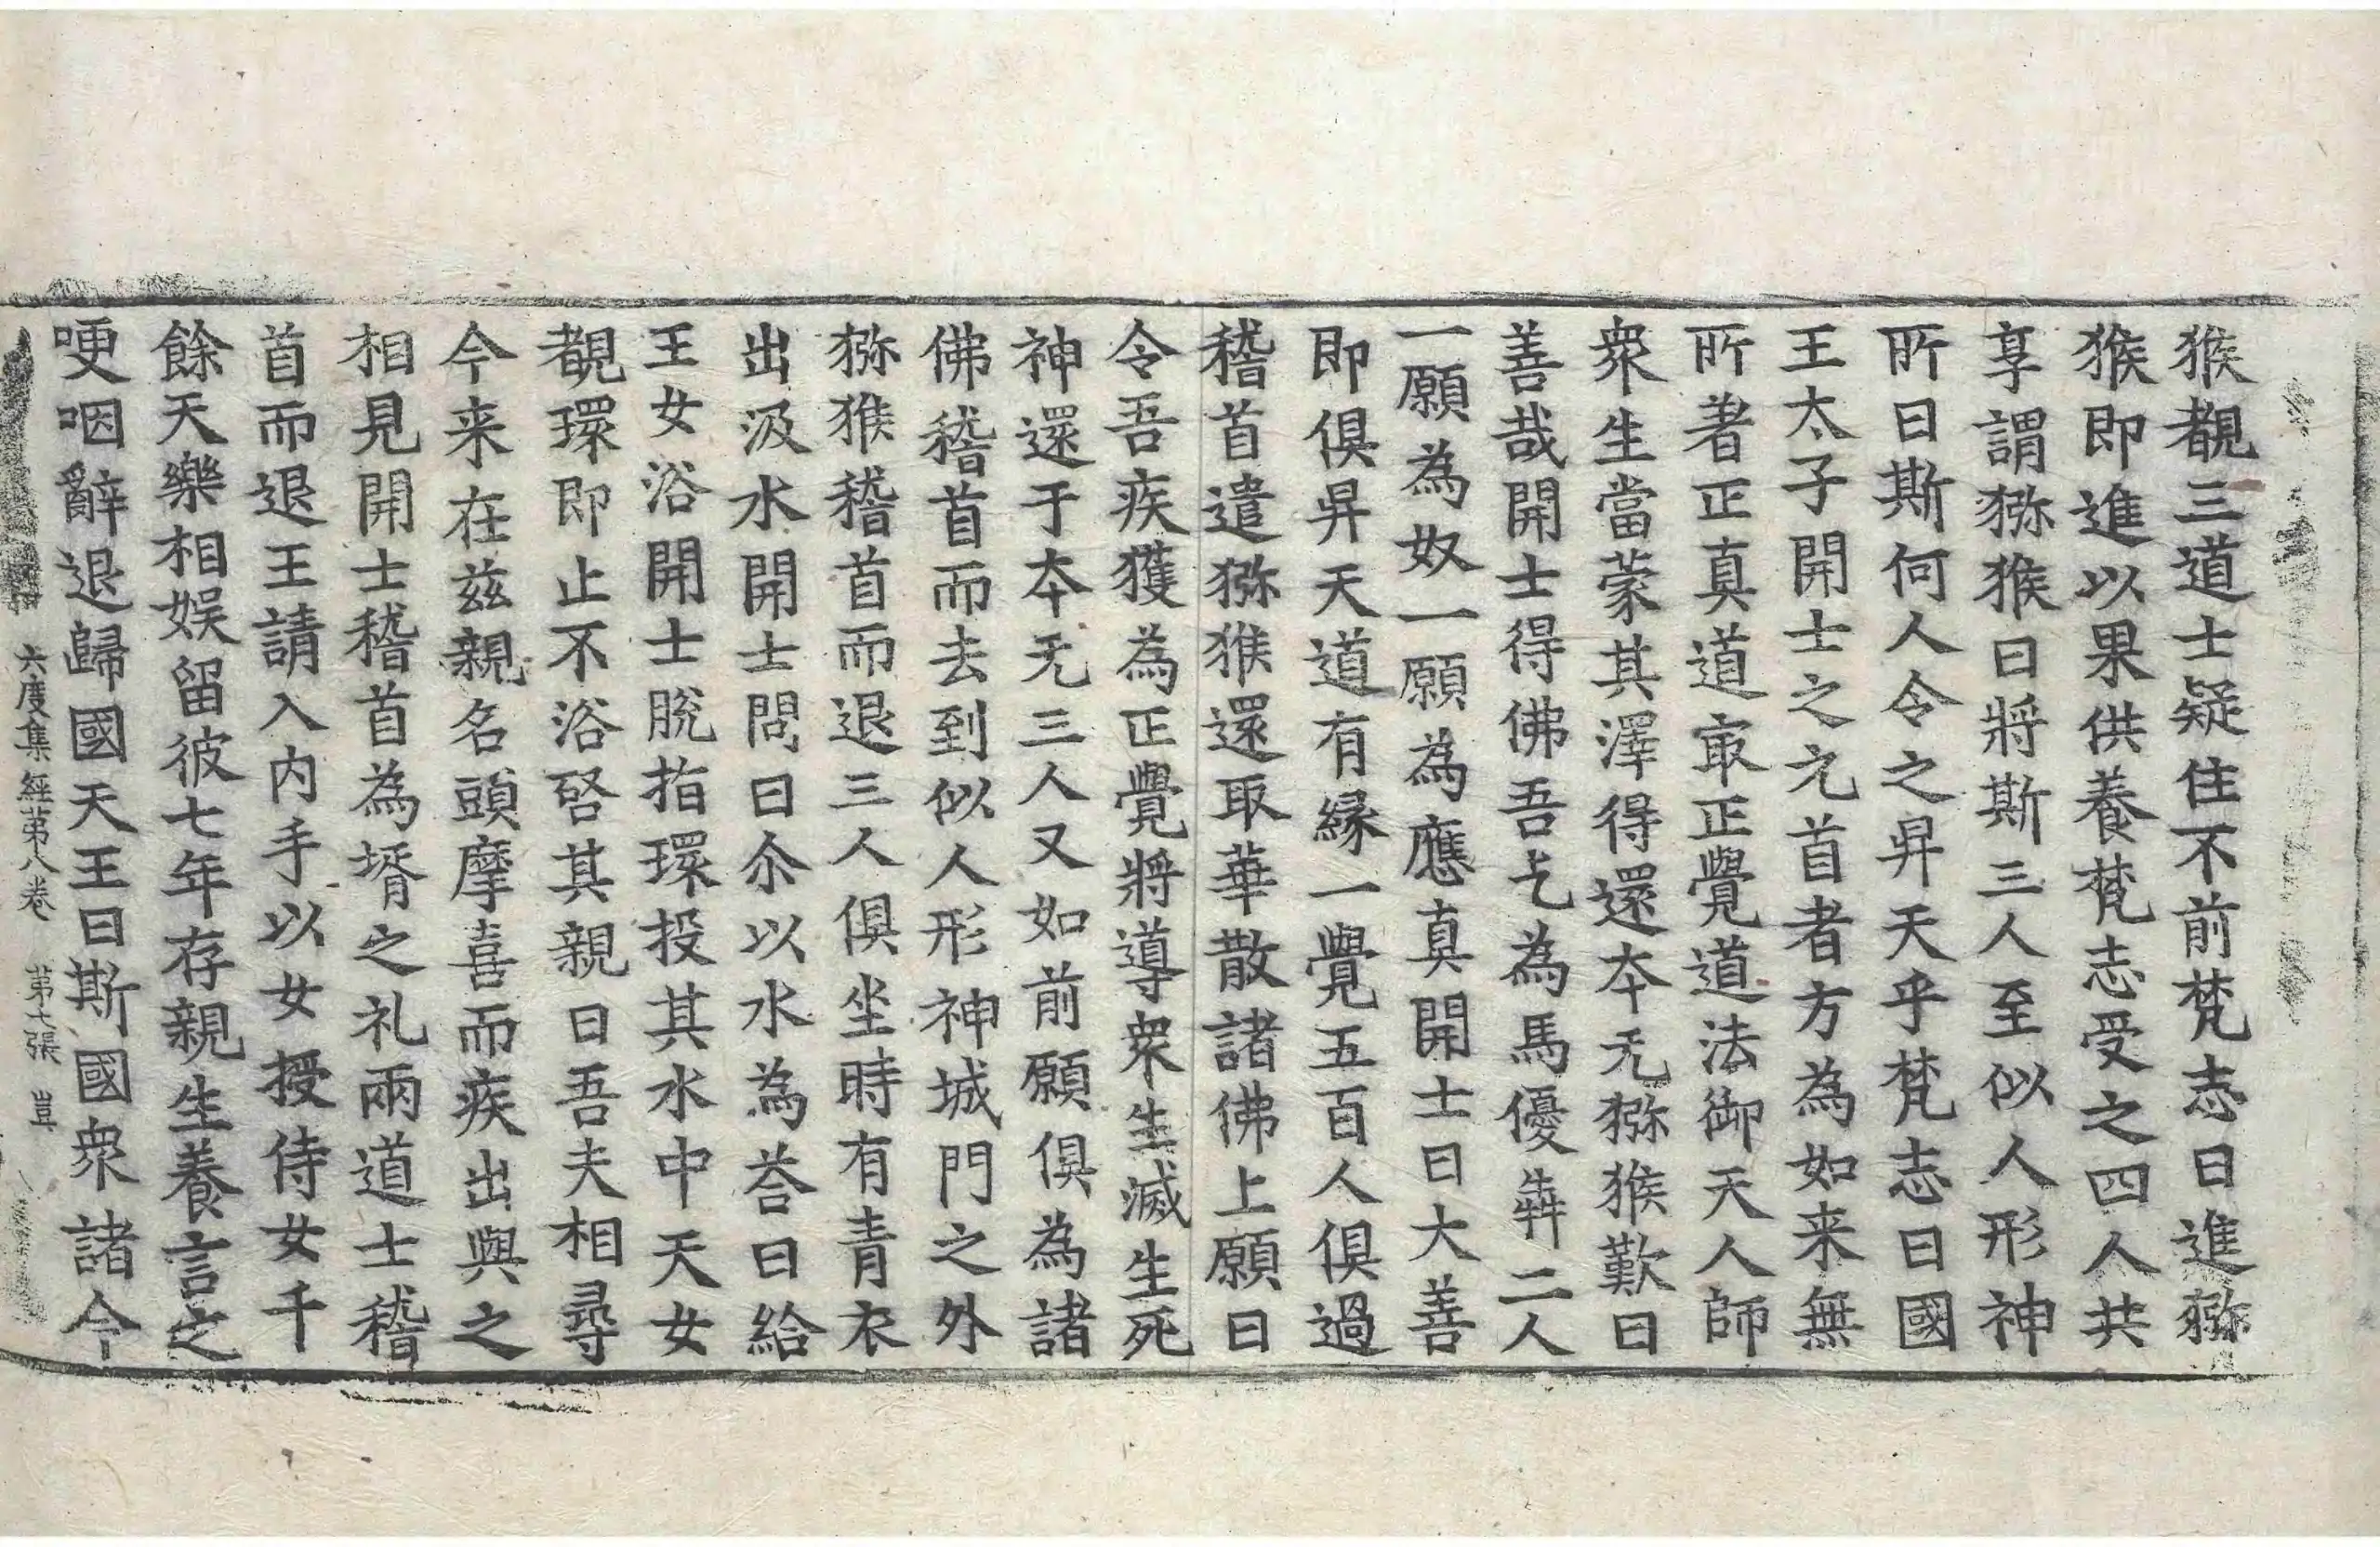 猴覩三道士疑住不前梵志曰進獼
猴即進以果供養梵志受之四人共
享謂猕猴曰將斯三人至似人形神
所曰斯何人令之昇天乎梵志曰國
王太子開士之元首者方為如来無
所著正真道㝡正覺道法御天人師
衆生當蒙其澤得還本无猕猴歎曰
善哉開士得佛吾乞為馬優犇二人
一願為奴一願為應真開士曰大善
即俱昇天道有縁一覺五百人俱過
稽首遣猕猴還取華散諸佛上願曰
令吾疾獲為正覺將導衆生滅生死
神還于本无三人又如前願俱為諸
佛稽首而去到似人形神城門之外
猕猴稽首而退三人俱坐時有青衣
出汲水開士問曰尒以水為荅曰給
王女浴開士脫指環投其水中天女
覩環即止不浴啓其親曰吾夫相尋
今来在兹親名頭摩喜而疾出與之
相見開士稽首為壻之礼兩道士稽
首而退王請入内手以女授侍女千
餘天樂相娱留彼七年存親生養言之
哽咽辭退歸國天王曰斯國衆諸今
六度集經第八卷 第七張 豈